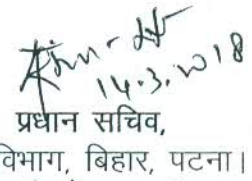 14.3.2018
प्रधान सचिव,
विभाग, बिहार, पटना।